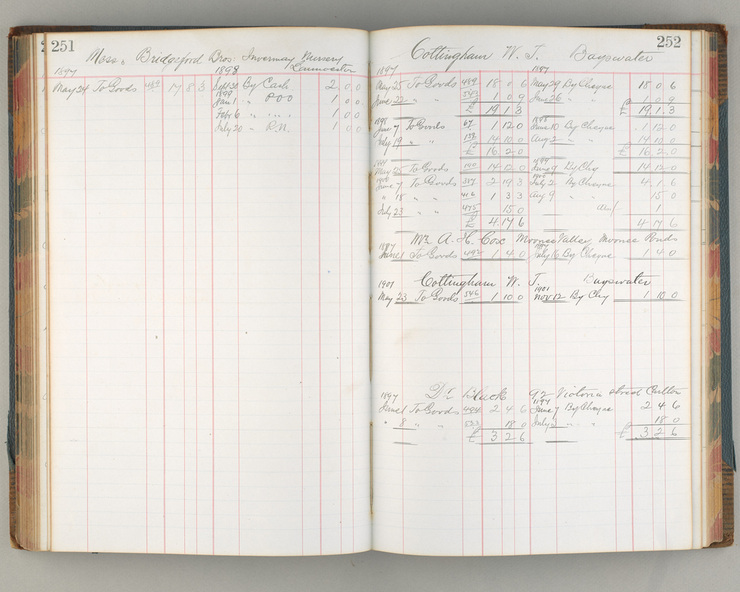 251
Bridgeford Bros. Invermay Nursery
1897 1898
May 24 To Goods 17 8 3 Sept 20 By Cash 2 0 0
1899
Jan 1 " P.O.O 1 0 0
Feb 6 " " 1 0 0
July 20 " P.N. 1 0 0
252
Cottingham W. J. Bayswater
1897 1897
May 25 To Goods 18 0 6 May 29 By Cheque 18 0 6
June 22 " " 1 0 9 June 26 " " 1 0 9
£ 19 1 3 £ 19 1 3
1898 1898
Jan 7 To Goods 67 1 12 0 June 10 By Cheque 1 12 0
July 19 " " 14 10 0 Aug 2 " " 14 10 0
£ 16 2 0 £ 16 2 0
May 25 To Goods 14 12 0 June 9 By Chq 14 12 0
June 7 To Goods 2 19 3 July 2 By Cheque 4 1 6
" 18 " " 416 1 3 3 Aug 9 " 15 0
July 23 " " 475 15 0
£ 4 17 6 4 17 6
Mr A. H. Cox Moonee Valley, Moonee Ponds
1897
June 1 To Goods 492 1 4 0 July 16 By Cheque 1 4 0
Cottingham W. J. Bayswater
1901 1901
May 23 To Goods 546 1 10 0 Nov 12 By Chq 1 10 0
Dr Black 92 Victoria street Carlton
1897 1897
June 1 To Goods 494 2 4 6 June 7 By Cheque 2 4 6
" 8 " " 523 18 0 July " " 18 0
£ 3 2 6 £ 3 2 6